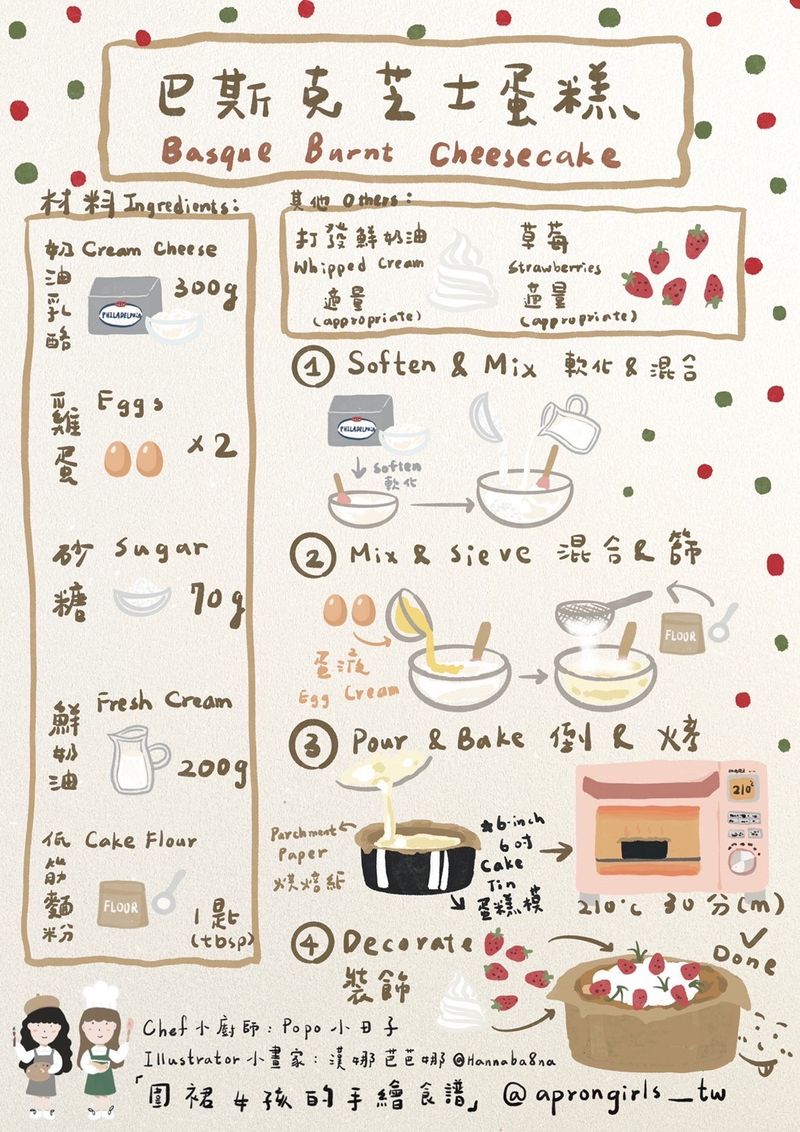 巴斯克芝士蛋糕
Basque Burnt Cheesecake
材料 Ingredients:
奶油乳酪 Cream Cheese
PHILADELPHIA
300g
雞蛋 Eggs
x2
砂糖 Sugar
70g
鮮奶油 Fresh Cream
200g
低筋麵粉 Cake Flour
FLOUR
1匙
(tbsp)
其他 Others:
打發鮮奶油
Whipped Cream
適量
(appropriate)
草莓
Strawberries
適量
(appropriate)
① Soften & Mix 軟化&混合
PHILADELPHIA
Soften
軟化
② Mix & Sieve 混合&篩
蛋液
Egg Cream
FLOUR
③ Pour & Bake 倒&烤
Parchment
Paper
烘焙紙
*6-inch
6吋
Cake
Tin
蛋糕模
210°
210°c 30分(m)
④ Decorate
裝飾
Done
Chef小廚師:Popo小日子
Illustrator小畫家:漢娜芭芭娜@Hannaba8na
「圍裙女孩的手繪食譜」@aprongirls_tw